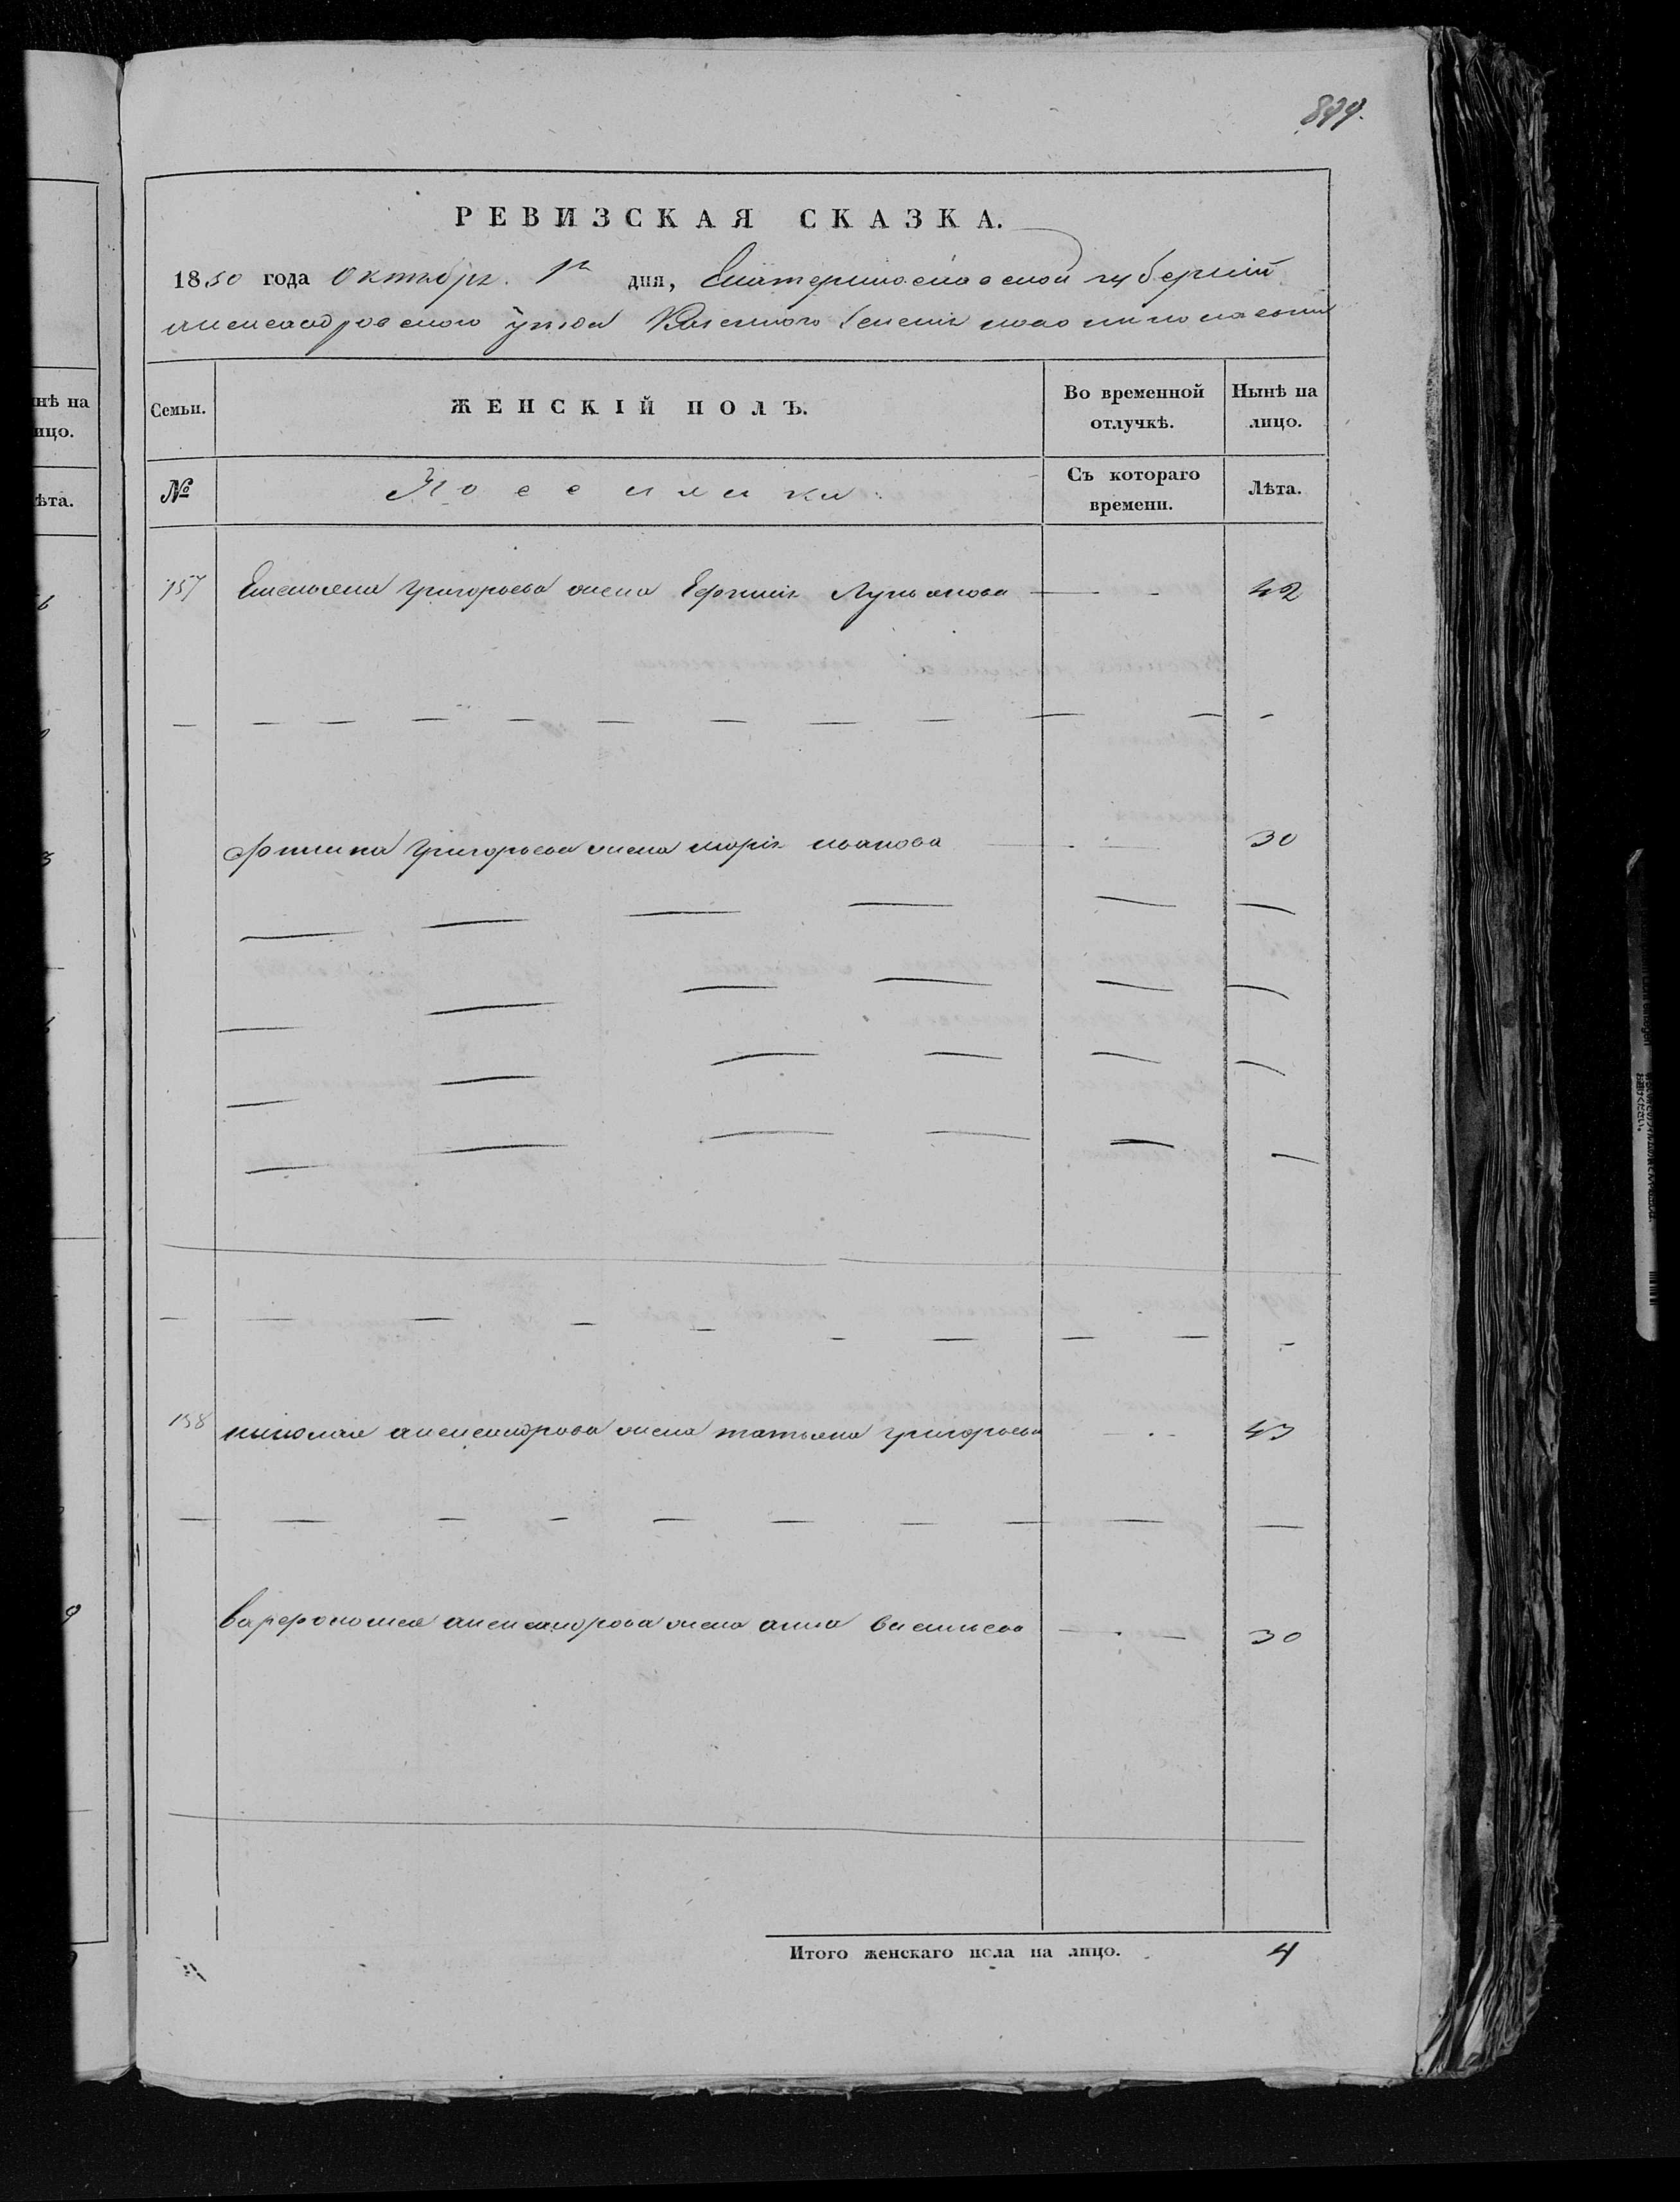 РЕВИЗСКАЯ СКАЗКА.
1850 года Октября 1го дня, Екатеринославской губернии
александровского уезда Казенного Селения новониколаевки
Семьи. ЖЕНСКІЙ ПОЛЪ. Во временной отлучкѣ. Нынѣ на лицо.
№ Поселянки Съ котораго времени. Лѣта.
157 Емельяна Григорьева жена Ефимия Лукьянова 42
Григорьева жена мария иванова 30
158 николая александрова жена татьяна григорьева 43
варфоломея александрова жена анна васильева 30
Итого женскаго пола на лицо. 4
нѣ на
ицо.
ѣта.